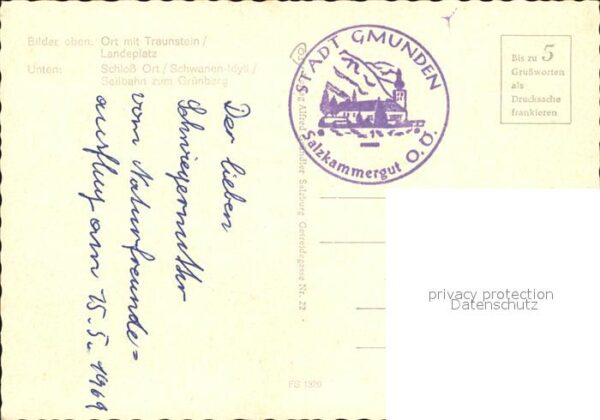 Bilder oben: Ort mit Traunstein /
Landeplatz
Unten: Schloß Ort / Schwanen-Idyll /
Seilbahn zum Grünberg
Der lieben
Schwiegermutter
vom Naturfreunde=
ausflug am 15.5. 1969
STADT GMUNDEN
Salzkammergut O.Ö.
Alfred Salzburg Getreidegasse Nr. 22
FS 1320
Bis zu 5
Grußworten
als
Drucksache
frankieren
privacy protection
Datenschutz